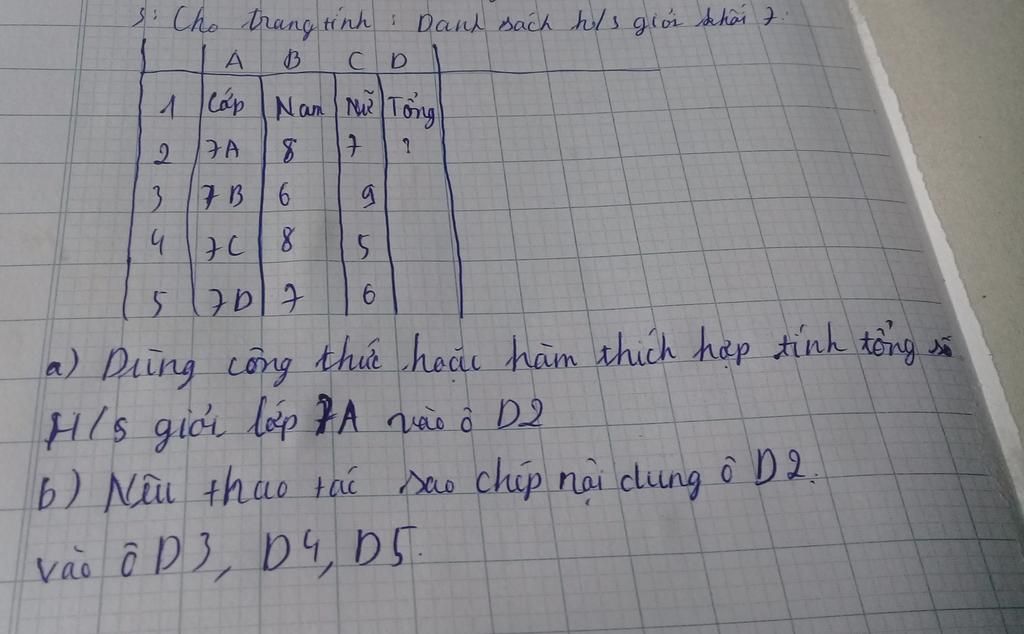 3: Cho trang tính : Danh sách h/s giỏi khối 7.
A B C D
1 Lớp Nam Nữ Tổng
2 7A 8 7 ?
3 7B 6 9
4 7C 8 5
5 7D 7 6
a) Dùng công thức hoặc hàm thích hợp tính tổng số
H/s giỏi lớp 7A vào ô D2
b) Nêu thao tác sao chép nội dung ô D2.
vào ô D3, D4, D5.